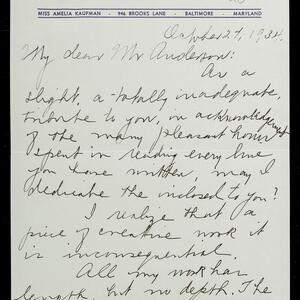 MISS AMELIA KAUFMAN - 946 BROOKS LANE - BALTIMORE - MARYLAND
October 27, 1934.
My dear Mr Anderson:
As a
slight, a totally inadequate,
tribute to you, in acknowledgment
of the many pleasant hours
spent in reading every line
you have written, may I
dedicate the inclosed to you?
I realize that a
piece of creative work it
is inconsequential.
All my work has
length, but no depth. The